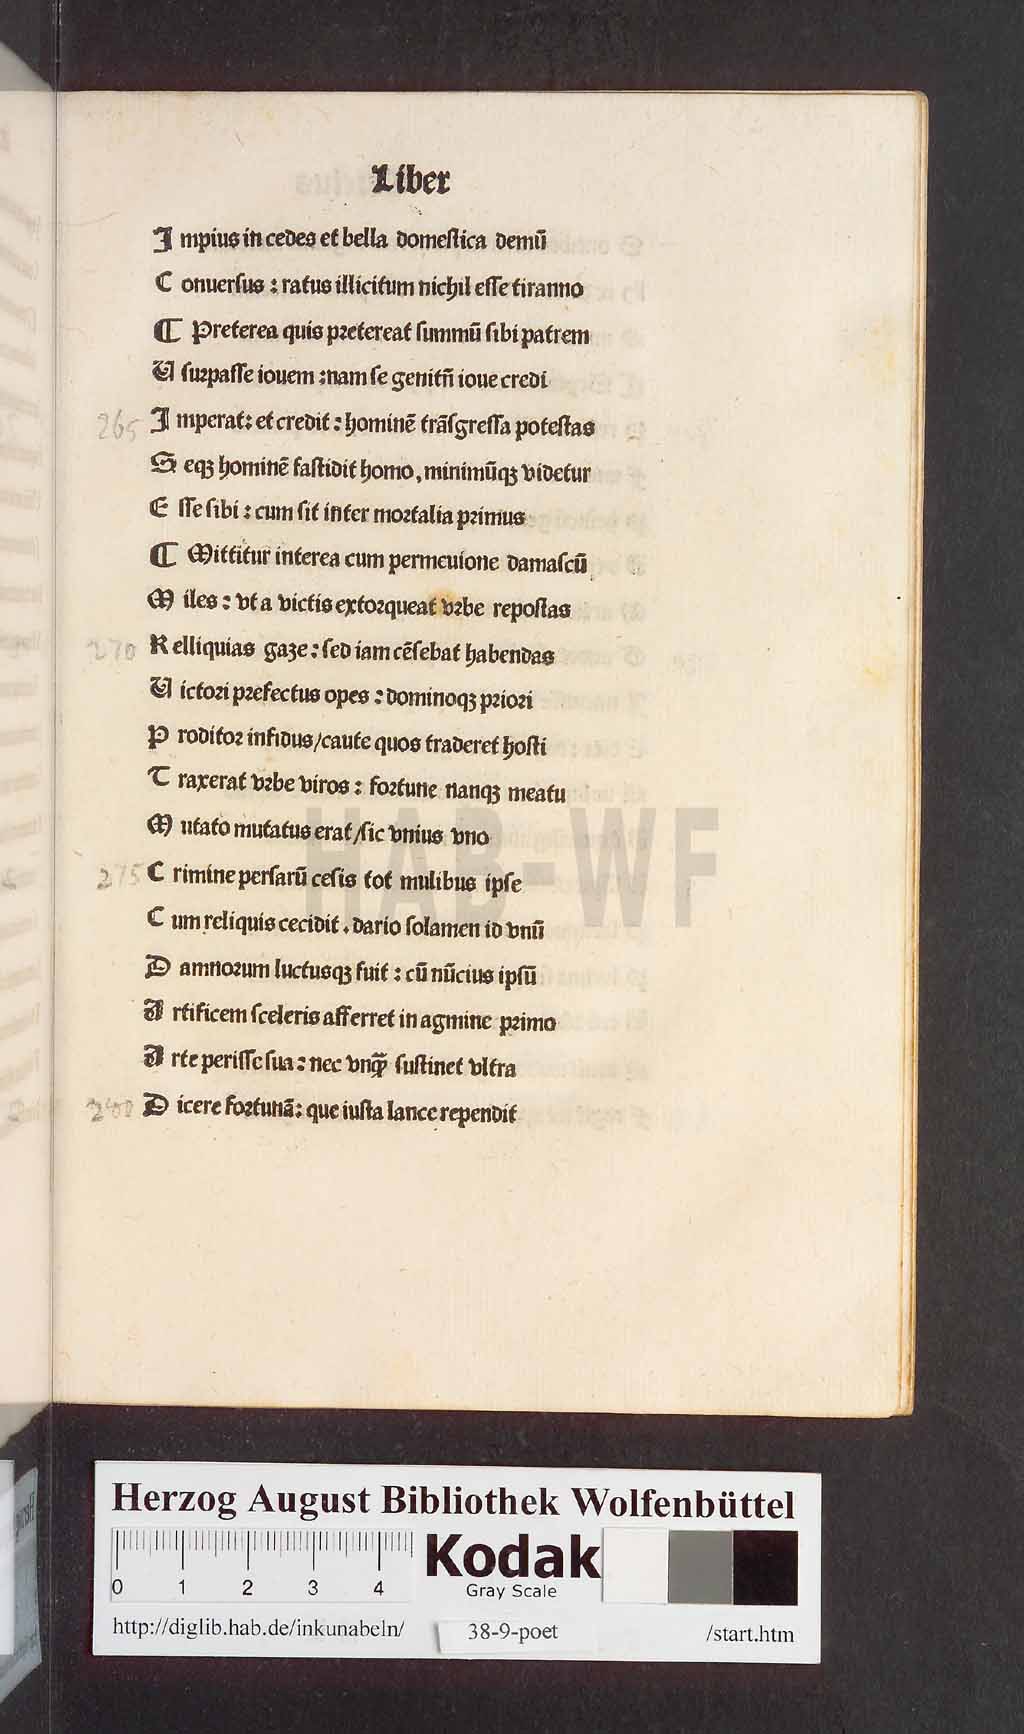 Liber
I mpius in cedes et bella domestica demū
C onuersus : ratus illicitum nichil esse tiranno
¶ Preterea quis pretereat summū sibi patrem
U surpasse iouem : nam se genitū ioue credi
265 I mperat: et credit : hominē trāsgressa potestas
S eqꝫ hominē fastidit homo, minimūqꝫ videtur
E sse sibi : cum sit inter mortalia primus
¶ Mittitur interea cum permenione damascū
M iles : vt a victis extorqueat vrbe repostas
270 R elliquias gaze : sed iam cēsebat habendas
U ictori prefectus opes : dominoqꝫ priori
P roditor infidus/caute quos traderet hosti
T raxerat vrbe viros : fortune nanqꝫ meatu
M utato mutatus erat/sic vnius vno
275 C rimine persarū cesis tot milibus ipse
C um reliquis cecidit . dario solamen id vnū
D amnorum luctusqꝫ fuit : cū nūcius ipsū
A rtificem sceleris afferret in agmine primo
A rte perisse sua : nec vnqꝫ̄ sustinet vltra
280 D icere fortunā: que iusta lance rependit
HAB-WF
Herzog August Bibliothek Wolfenbüttel
0 1 2 3 4
Kodak
Gray Scale
http://diglib.hab.de/inkunabeln/ 38-9-poet /start.htm